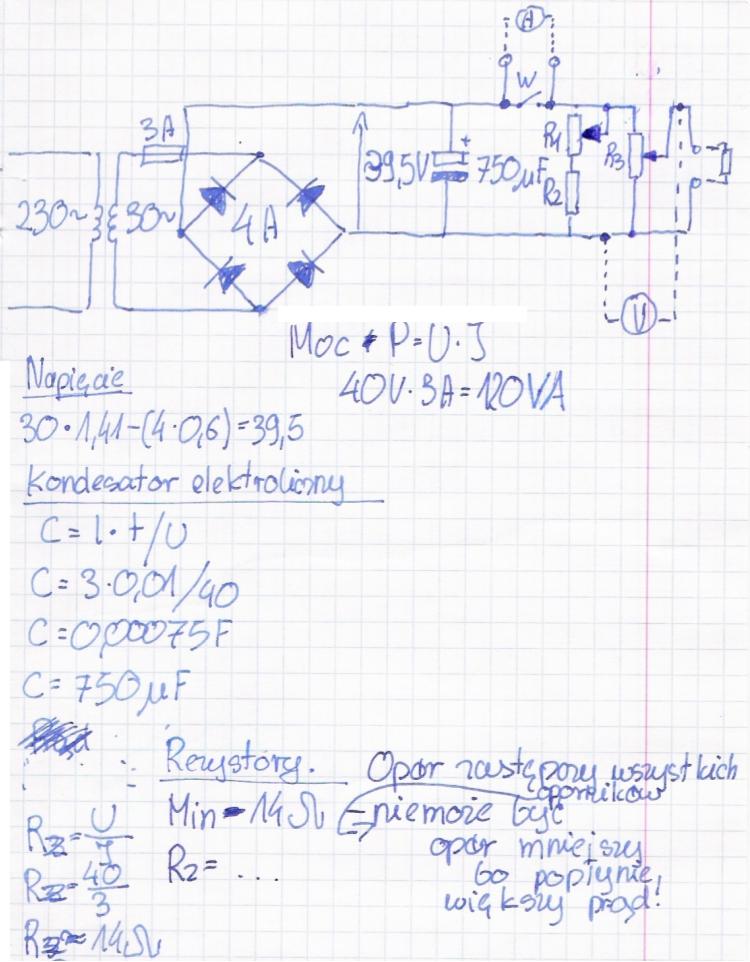 A
W
3A
+
R1
R3
39,5V
750µF
230~
30~
4A
R2
V
Moc P=U·I
40V·3A=120VA
Napięcie
30·1,41-(4·0,6)=39,5
Kondesator elektroliczny
C=I·t/U
C=3·0,01/40
C=0,00075F
C=750µF
Rezystory.
Opór zastępczy wszystkich
oporników
Min - 14Ω
niemoże być
opór mniejszy
bo popłynie
większy prąd!
R2= ...
Rz=U/I
Rz=40/3
Rz=14Ω